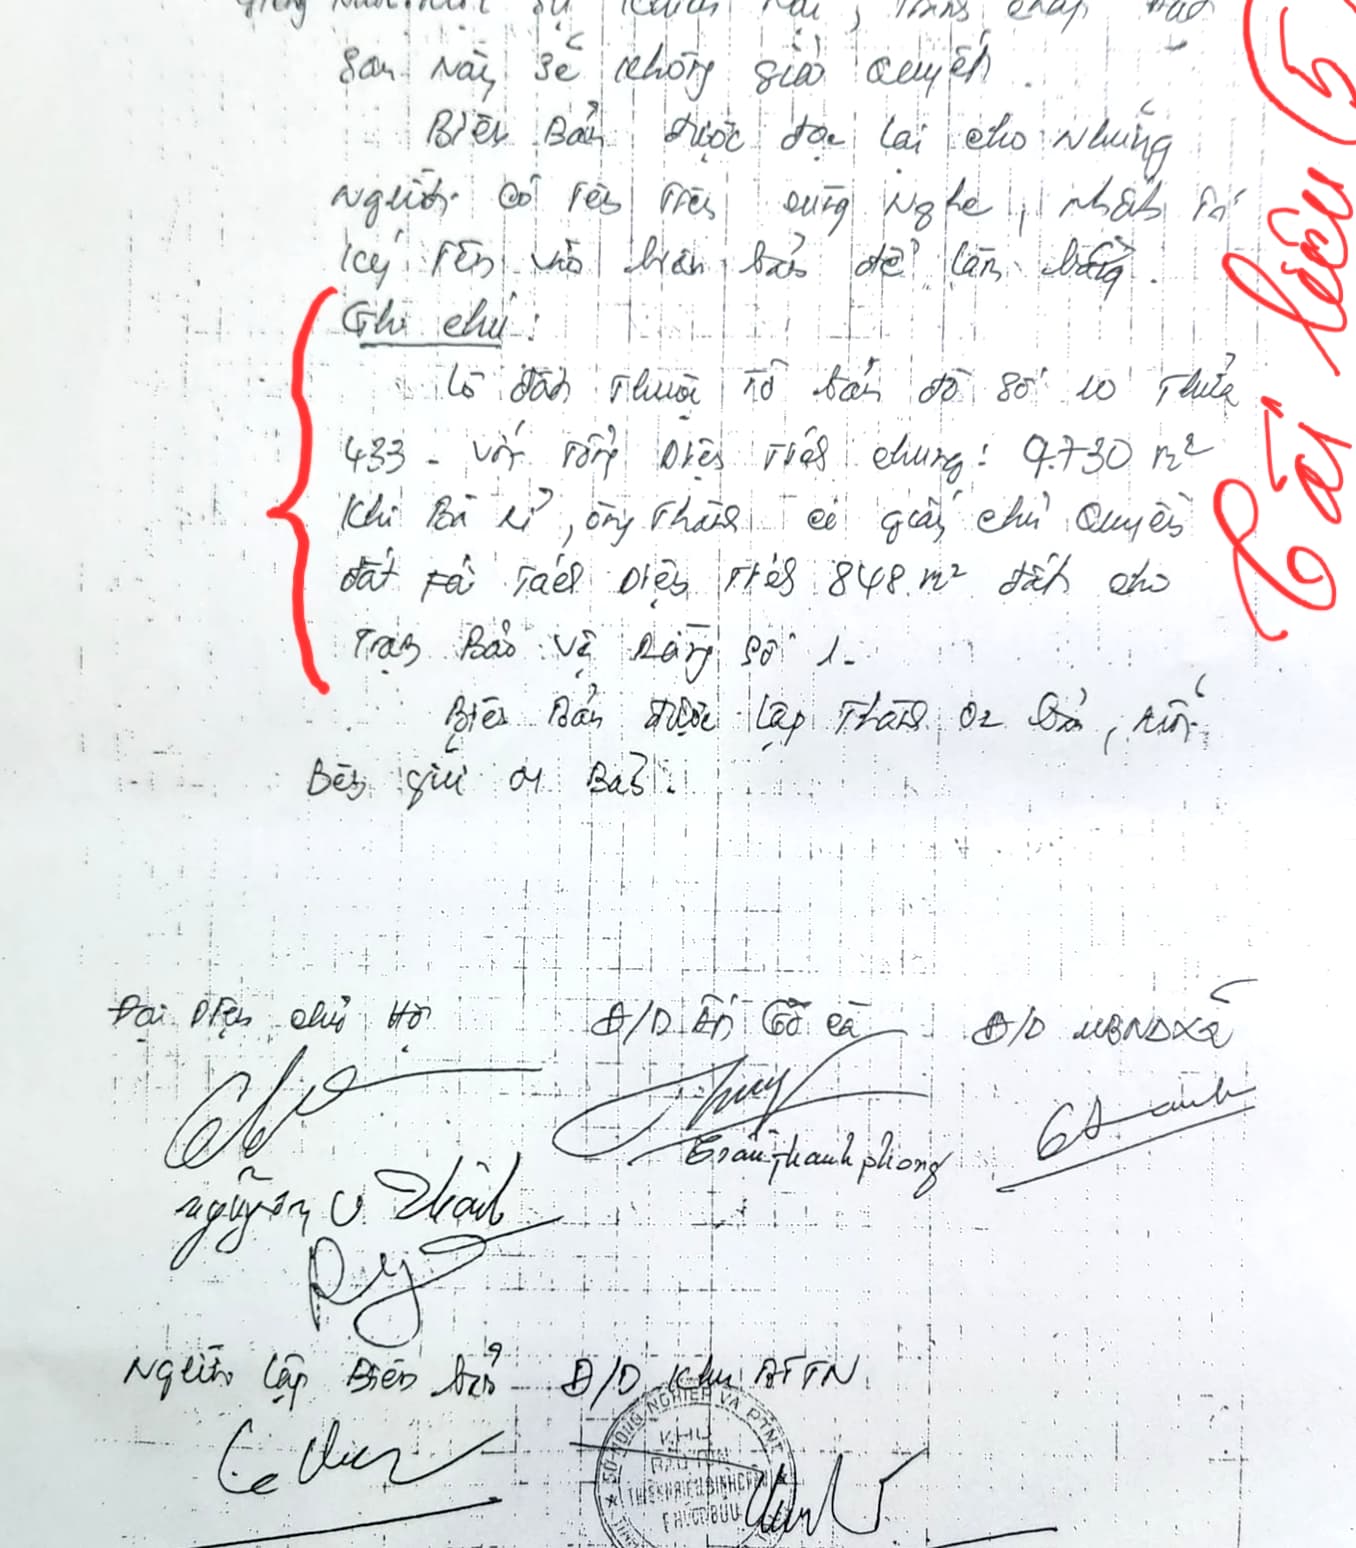 sau này sẽ không giải quyết.
Biên Bản được đọc lại cho những
người có tên trên cùng nghe, nhất trí
ký tên vào biên bản để làm bằng.
Ghi chú:
Lô đất thuộc tờ bản đồ số 10 thửa
433 - với tổng diện tích chung: 9.730 m²
Khi Bà , ông Thành có giấy chủ quyền
đất tách diện tích 848 m² đất cho
Trạm Bảo vệ Rừng số 1.
Biên Bản được lập thành 02 bản, mỗi
Bên giữ 01 Bản.
Tài liệu 5
Đại Diện chủ hộ
Đ/D Ấp
Đ/D UBNDXã
Trần Thanh Phong
Nguyễn V Thành
Người lập Biên bản
Đ/D Khu BTTN
SỞ NÔNG NGHIỆP VÀ PTNT
KHU
BẢO TỒN
THIÊN NHIÊN BÌNH CHÂU
PHƯỚC BỬU